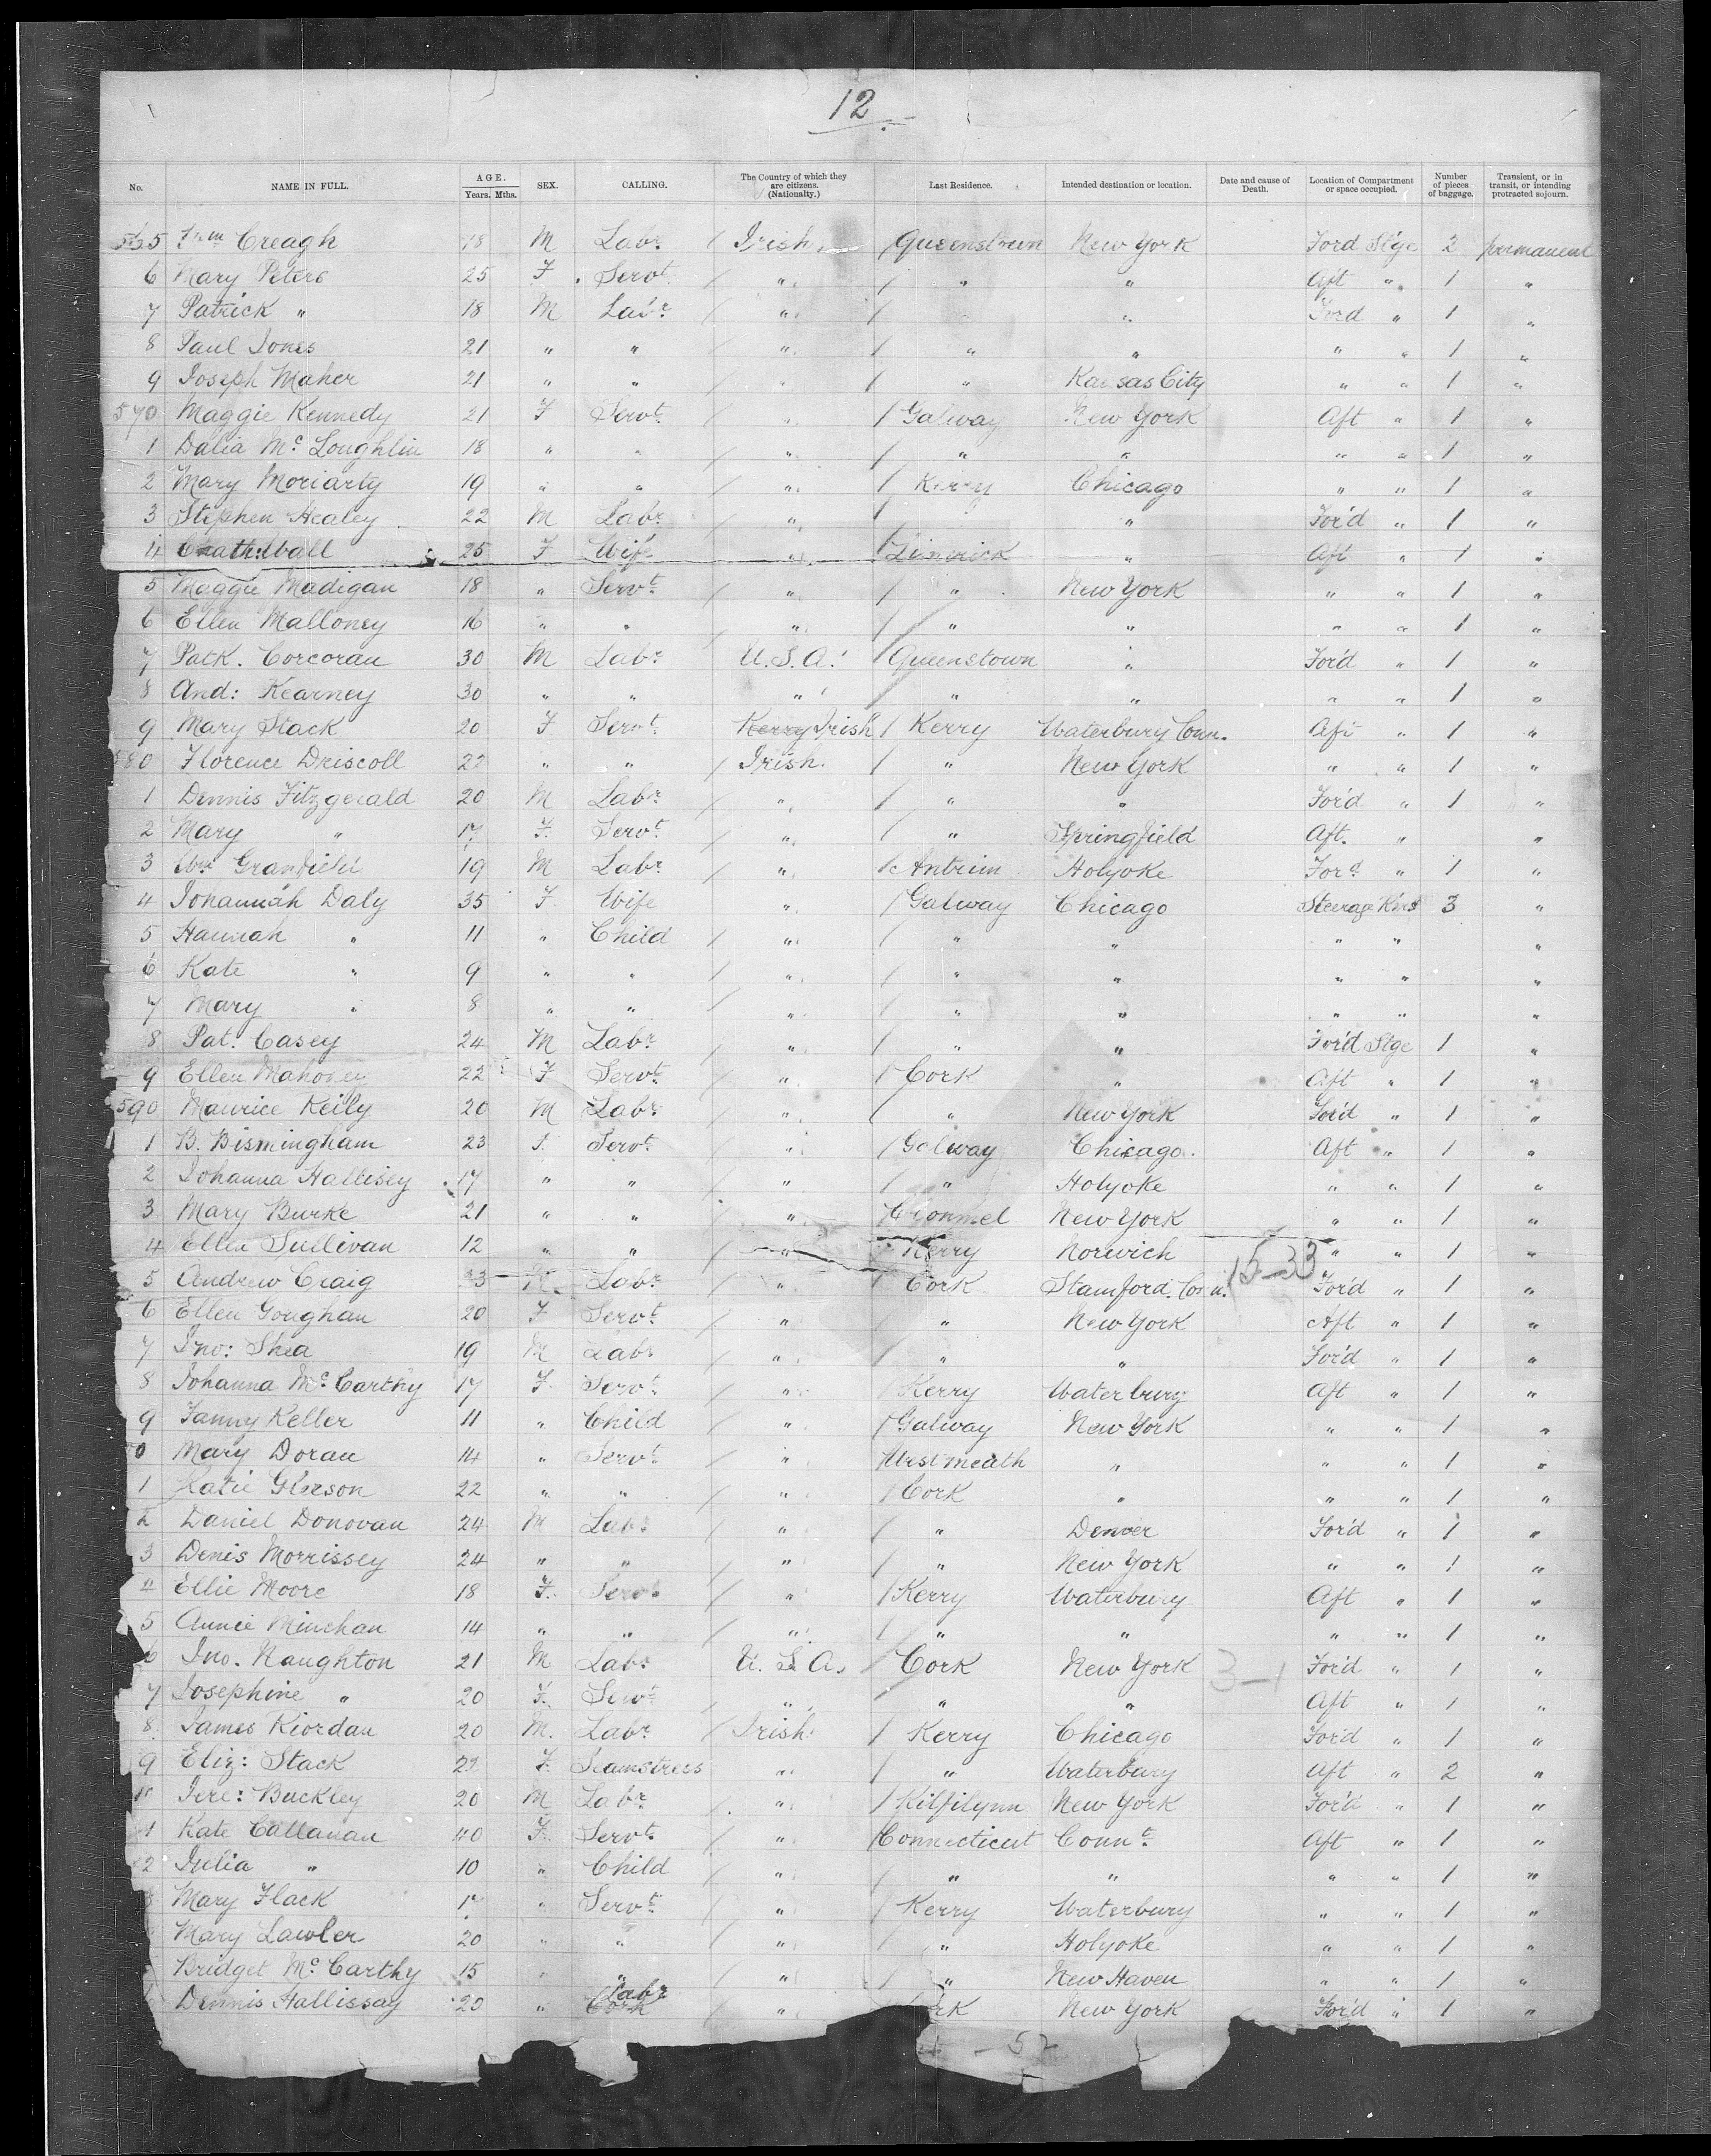 12
No. NAME IN FULL. AGE. Years. Mths. SEX. CALLING. The Country of which they are citizens. (Nationality.) Last Residence. Intended destination or location. Date and cause of Death. Location of Compartment or space occupied. Number of pieces of baggage. Transient, or in transit, or intending protracted sojourn.
565 Creagh 18 M Labr / Irish / Queenstown New York Ford Stge 2 permanent
6 Mary Peters 25 F Servt / " / " " Aft " 1 "
7 Patrick " 18 M Labr / " / " " Ford " 1 "
8 Paul Jones 21 " " / " / " " " " 1 "
9 Joseph Maher 21 " " / " / " Kansas City " " 1 "
570 Maggie Kennedy 21 F Servt " / Galway New York Aft " 1 "
1 Dalia Mc Loughlin 18 " " / " / " " " " 1 "
2 Mary Moriarty 19 " " / " / Kerry Chicago " " 1 "
3 Stephen Healey 22 M Labr / " / " " For'd " 1 "
4 Cath: Wall 25 F Wife " / Limerick " Aft " 1 "
5 Maggie Madigan 18 " Servt / " / " New York " " 1 "
6 Ellen Malloney 16 " " / " / " " " " 1 "
7 Patk. Corcoran 30 M Labr U.S.A. / Queenstown " For'd " 1 "
8 And: Kearney 30 " " " / " " " " 1 "
9 Mary Stack 20 F Servt Kerry Irish / Kerry Waterbury Conn. Aft " 1 "
580 Florence Driscoll 22 " " / Irish / " New York " " 1 "
1 Dennis Fitzgerald 20 M Labr / " / " " For'd " 1 "
2 Mary " 17 F. Servt / " / " Springfield Aft. " "
3 Wm Granfield 19 M Labr / " / Antrim Holyoke Ford " 1 "
4 Johannah Daly 35 F Wife " / Galway Chicago Steerage 3 "
5 Hannah " 11 " Child / " / " " " " "
6 Kate " 9 " " / " / " " " " "
7 Mary " 8 " " / " / " " " " "
8 Pat. Casey 24 M Labr / " / " " For'd Stge 1 "
9 Ellen Mahoney 22 F Servt / " / Cork " Aft " 1 "
590 Maurice Keily 20 M Labr / " / " New York For'd " 1 "
1 B. Bismingham 23 F. Servt / " / Galway Chicago. Aft " 1 "
2 Johanna Hallisey 17 " " / " / " Holyoke " " 1 "
3 Mary Burke 21 " " / " / Clonmel New York " " 1 "
4 Ellen Sullivan 12 " " / " / Kerry Norwich " " 1 "
15-33
5 Andrew Craig 33 M. Labr / " / Cork Stamford. Conn. For'd " 1 "
6 Ellen Goughan 20 F Servt / " / " New York Aft " 1 "
7 Jno: Shea 19 M Labr / " / " " For'd " 1 "
8 Johanna Mc Carthy 17 F. Servt / " / Kerry Waterbury Aft " 1 "
9 Fanny Keller 11 " Child / " / Galway New York " " 1 "
0 Mary Doran 14 " Servt / " / Westmeath " " " 1 "
1 Katie Gleeson 22 " " / " / Cork " " " 1 "
2 Daniel Donovan 24 M Labr / " / " Denver For'd " 1 "
3 Denis Morrissey 24 " " / " / " New York " " 1 "
4 Ellie Moore 18 F. Servt / " / Kerry Waterbury Aft " 1 "
5 Annie Minehan 14 " " / " / " " " " 1 "
6 Jno. Naughton 21 M Labr U.S.A. / Cork New York 3-1 For'd " 1 "
7 Josephine " 20 F. Servt / " / " " Aft " 1 "
8 James Riordan 20 M. Labr / Irish / Kerry Chicago For'd " 1 "
9 Eliz: Stack 22 F. Seamstress " / " Waterbury Aft " 2 "
Jere: Buckley 20 M Labr / " / Kilfilynn New York For'd " 1 "
1 Kate Callanan 40 F. Servt / " / Connecticut Connt. Aft " 1 "
2 Julia " 10 " Child / " / " " " " 1 "
Mary Flack 17 " Servt / " / Kerry Waterbury " " 1 "
Mary Lawler 20 " " / " / " Holyoke " " 1 "
Bridget Mc Carthy 15 " " / " / " New Haven " " 1 "
Dennis Hallissay 20 " Labr Cork / " rk New York For'd " 1 "
- 52